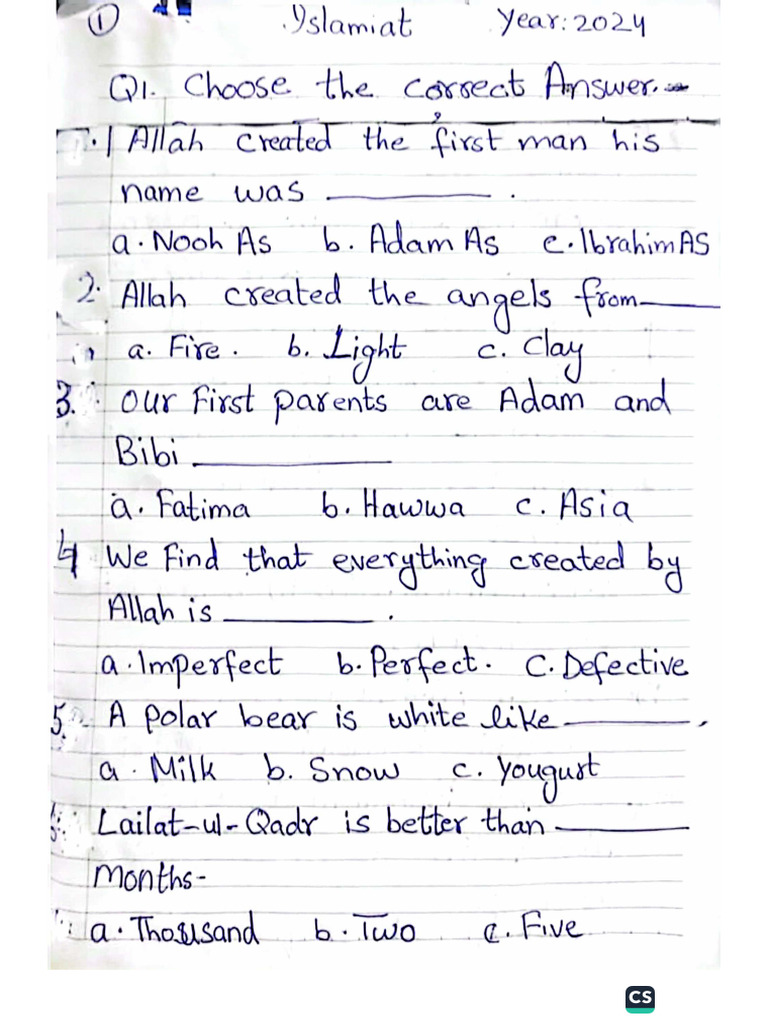 1 Islamiat Year: 2024
Q1. Choose the correct Answer.-
.1 Allah created the first man his
name was ________ .
a. Nooh As b. Adam As c. Ibrahim AS
2. Allah created the angels from ____
a. Fire. b. Light c. Clay
3. Our First parents are Adam and
Bibi ________
a. Fatima b. Hawwa c. Asia
4 We find that everything created by
Allah is ________ .
a. Imperfect b. Perfect. C. Defective
5. A polar bear is white like ________ ,
a. Milk b. Snow c. Yougust
Lailat-ul-Qadr is better than ________
months-
a. Thousand b. Two c. Five
CS